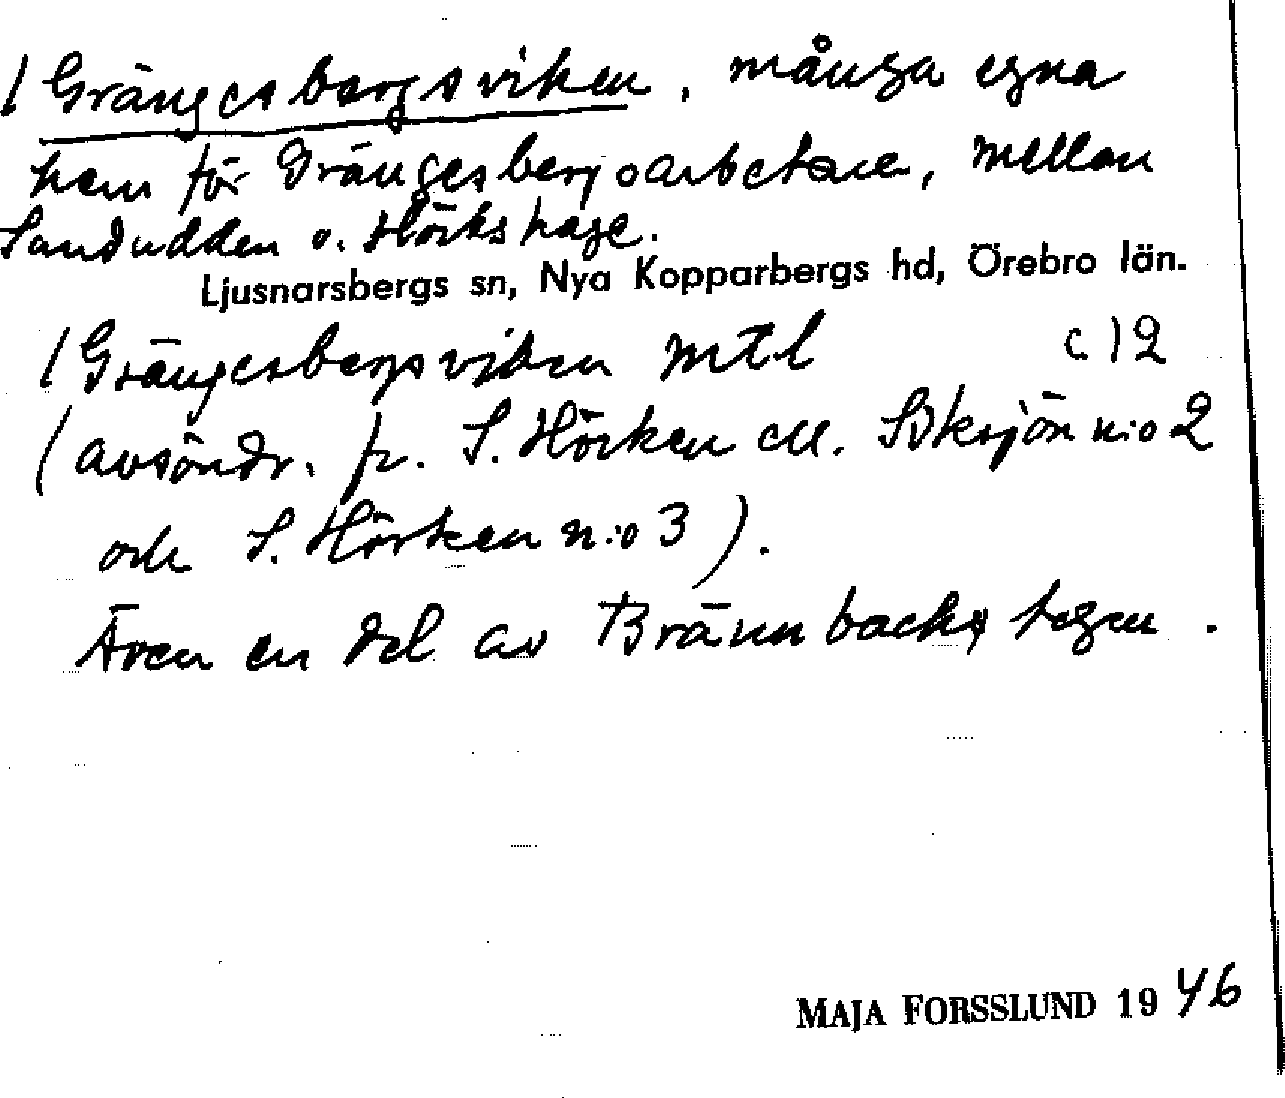 / Grängesbergsviken, många egna
hem för Grängesbergsarbetare, mellan
Sandudden o. Hörkshage.
Ljusnarsbergs sn, Nya Kopparbergs hd, Örebro län.
/ Grängesbergsviken mtl c 12
(avsöndr. fr. S. Hörken ell. Söksjön n:o 2
och S. Hörken n:o 3).
Även en del av Brännbacks tegen.
MAJA FORSSLUND 1946